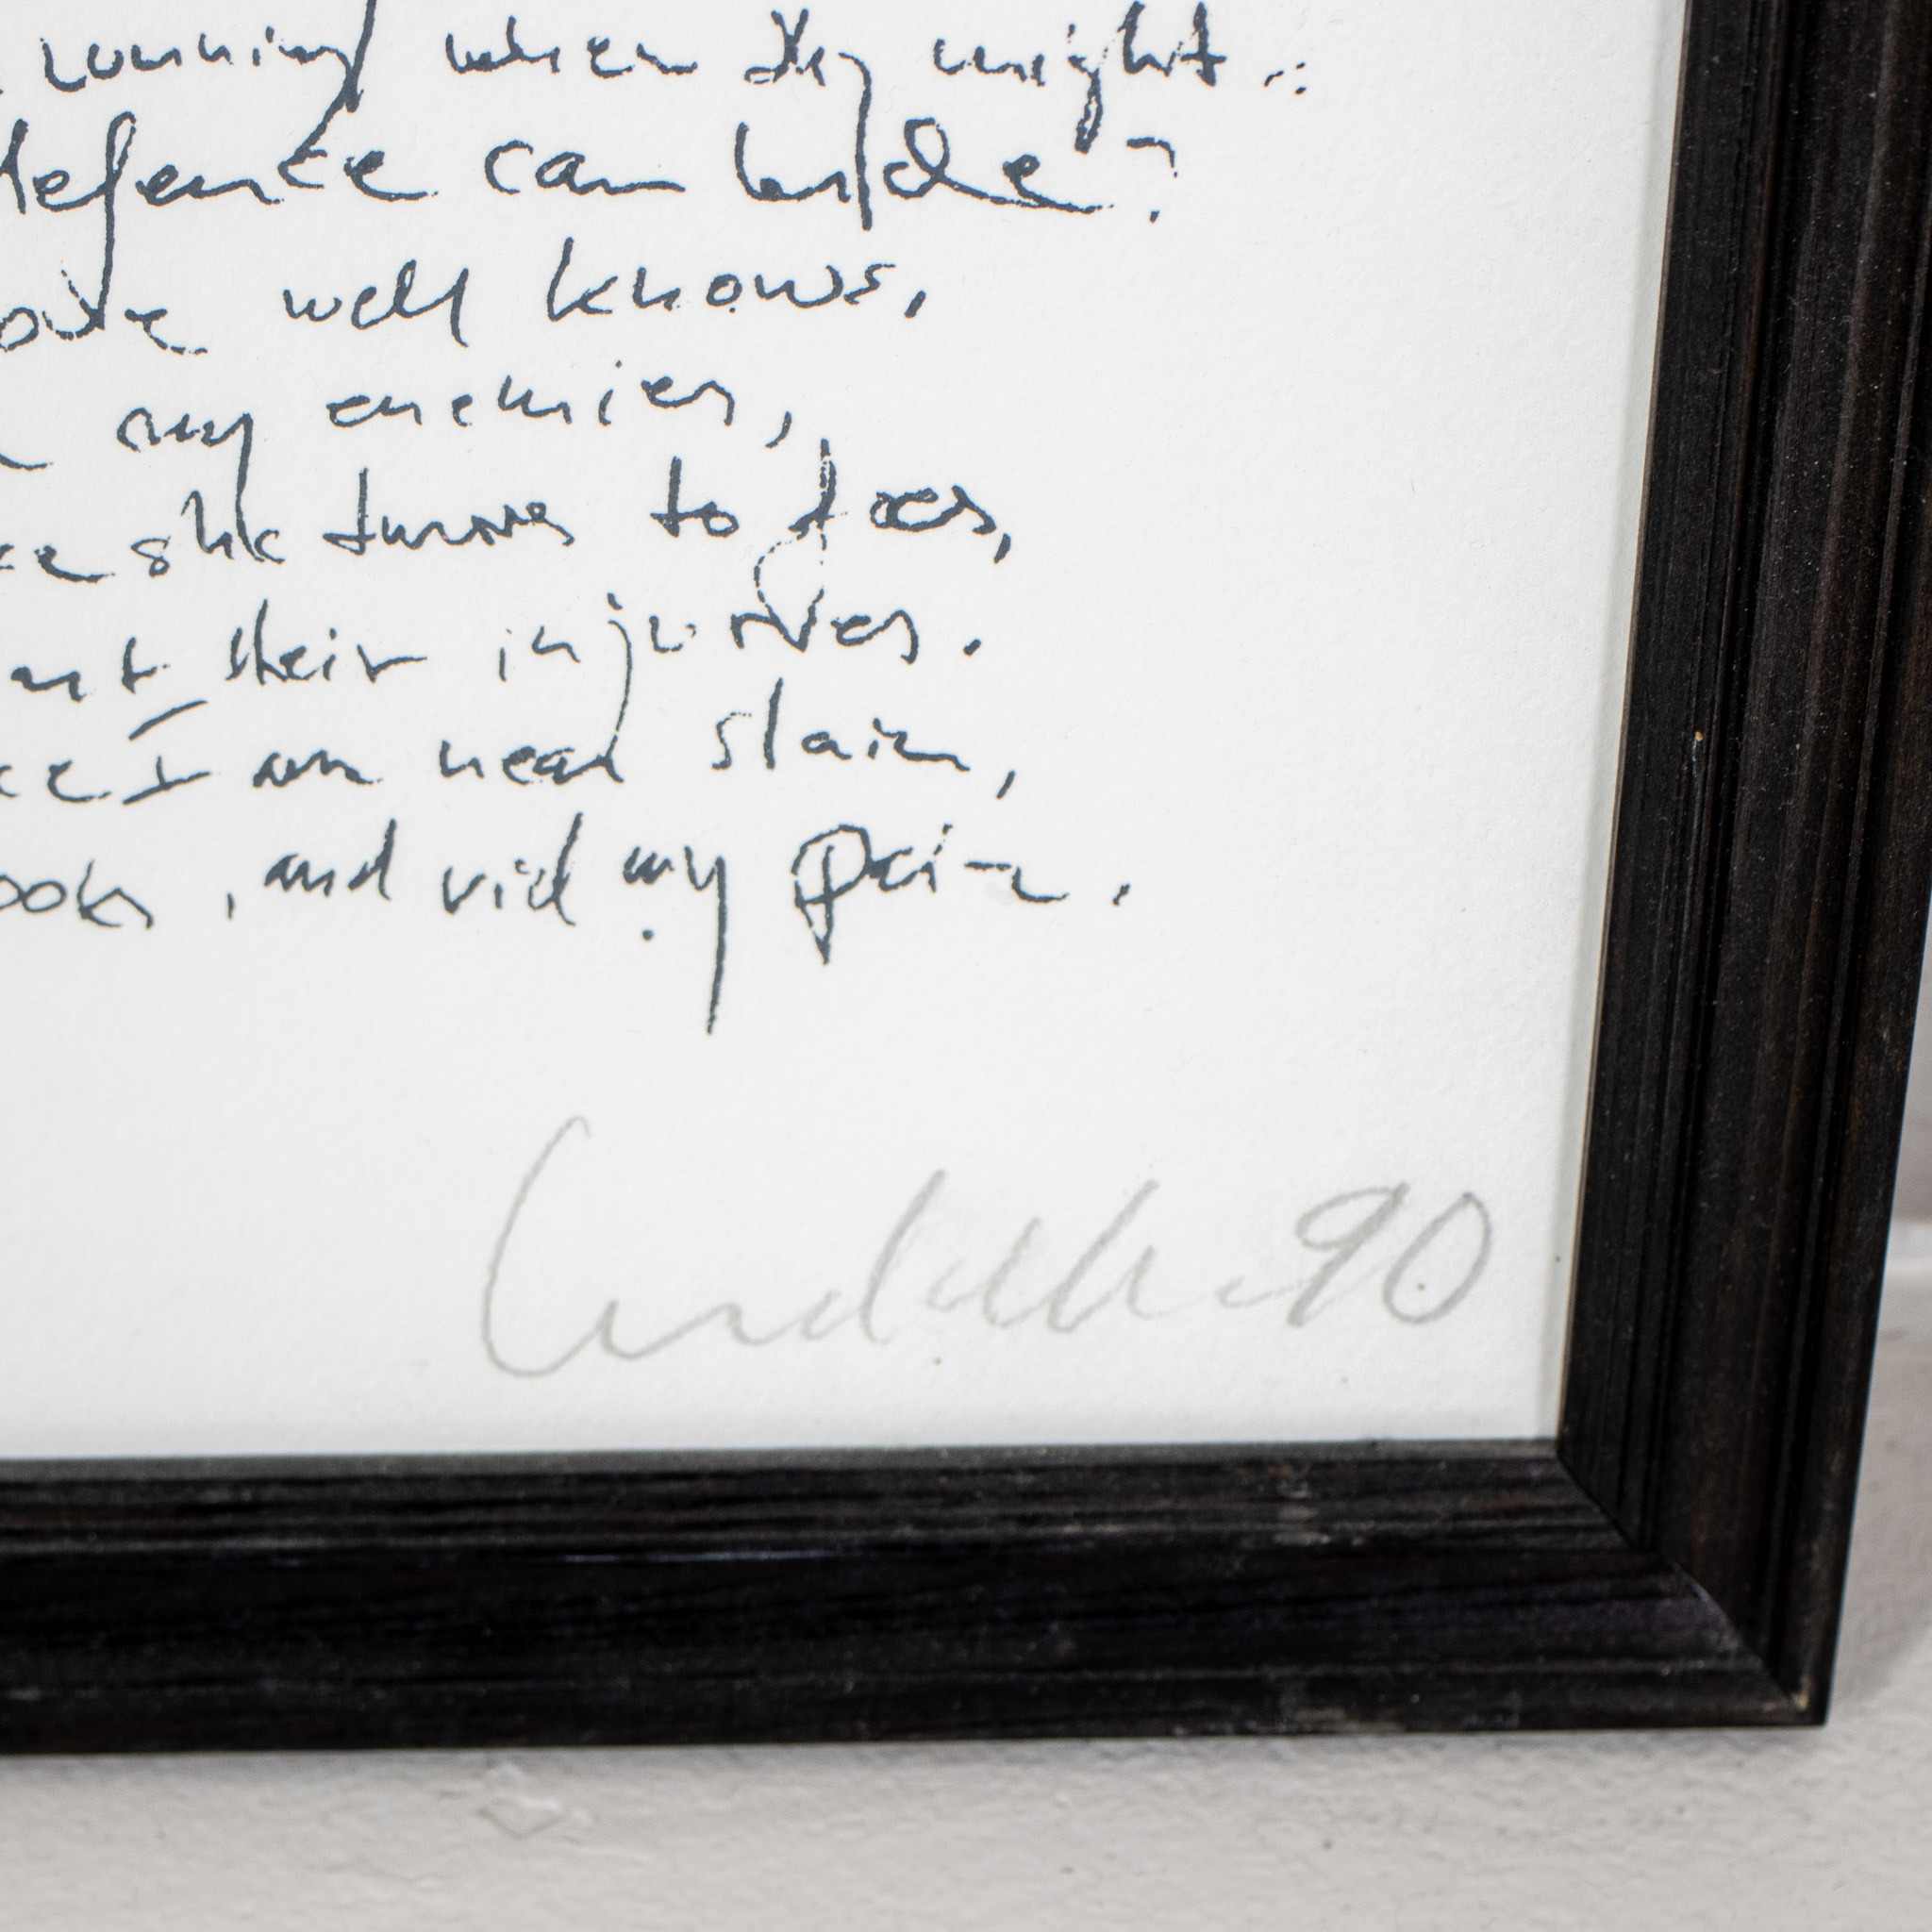 running when they might
defence can bide?
love well knows,
my enemies,
she turns to foes,
their injuries.
I am near slain,
looks, and rid my pain.
90